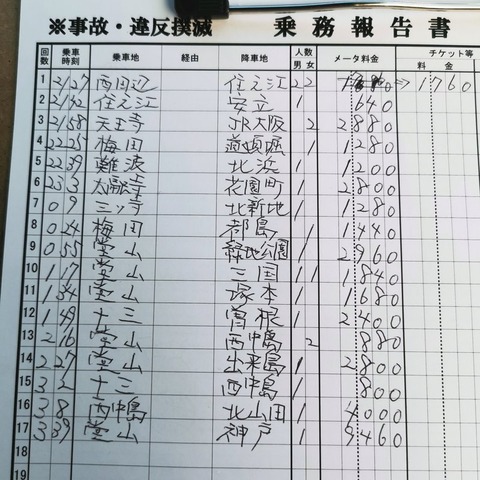 ※事故・違反撲滅 乗務報告書
回数 乗車時刻 乗車地 経由 降車地 人数 男 女 メータ料金 チケット等 料金
1 21 27 西田辺 住之江 2 2 ⇒ 1760
2 21 42 住之江 安立 1 640
3 21 58 天王寺 JR大阪 2 2880
4 22 25 梅田 道頓堀 1 1280
5 22 39 難波 北浜 1 1200
6 23 3 太融寺 花園町 1 2800
7 0 9 三ッ寺 北新地 1 1280
8 0 24 梅田 都島 1 1440
9 0 55 堂山 緑地公園 1 2960
10 1 17 堂山 三国 1 1 1840
11 1 34 堂山 塚本 1 1680
12 1 49 十三 曽根 1 2400
13 2 16 堂山 西中島 2 880
14 2 27 堂山 出来島 1 2800
15 3 2 十三 西中島 1 800
16 3 8 西中島 北山田 1 4000
17 3 39 堂山 神戸 1 9460
18
19